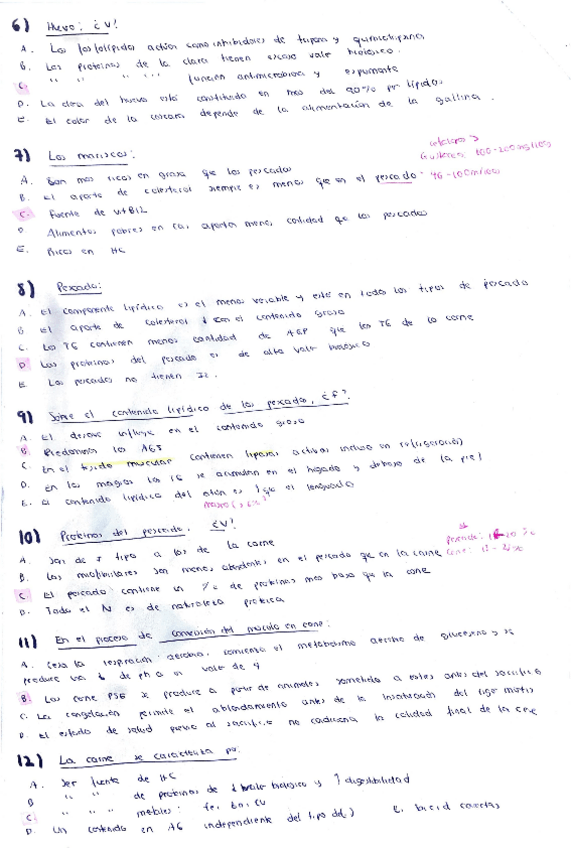 6) Huevo: ¿V!
A. Los fosfolípidos actúan como inhibidores de tripsina y quimiotripsina
B. Las proteínas de la clara tienen escaso valor biológico.
C. " " " " función antimicrobiana y espumante
D. La clara del huevo está constituida en más del 90% por lípidos
E. El color de la cáscara depende de la alimentación de la gallina.
7) Los mariscos:
A. Son más ricos en grasa que los pescados
B. El aporte de colesterol siempre es menor que en el pescado
C. Fuente de vit B12
D. Alimentos pobres en Ca, aportan menor cantidad que los pescados
E. Ricos en HC
8) Pescado:
A. El componente lipídico es el menos variable y está en todos los tipos de pescado
B. El aporte de colesterol ↓ con el contenido graso
C. Los TG contienen menos cantidad de AGP que los TG de la carne
D. Las proteínas del pescado es de alto valor biológico
E. Los pescados no tienen
9) Sobre el contenido lipídico de los pescados, ¿F?
A. El desove influye en el contenido graso
B. Predominan los AGS
C. En el tejido muscular contienen lipasas activas incluso en refrigeración
D. En los magros los TG se acumulan en el hígado y debajo de la piel
E. El contenido lipídico del atún es ↑ que el lenguado
10) Proteínas del pescado. ¿V!
A. Son de ≠ tipo a las de la carne
B. Las miofibrilares son menos abundantes en el pescado que en la carne
C. El pescado contiene un % de proteínas más bajo que la carne
D. Todo el N es de naturaleza proteica
11) En el proceso de conversión del músculo en carne:
A. Cesa la respiración aerobia, comienza el metabolismo aerobio de glucógeno y se
produce una ↓ de pH a un valor de 4
B. Las carne PSE se produce a partir de animales sometido a estrés antes del sacrificio
C. La congelación permite el ablandamiento antes de la instauración del rigor mortis
D. El estado de salud previo al sacrificio no condiciona la calidad final de la carne
12) La carne se caracteriza por:
A. Ser fuente de HC
B " " de proteínas de ↓ valor biológico y ↑ digestibilidad
C. " " " metales: Fe, Zn, Cu
D. Un contenido en AG independiente del tipo